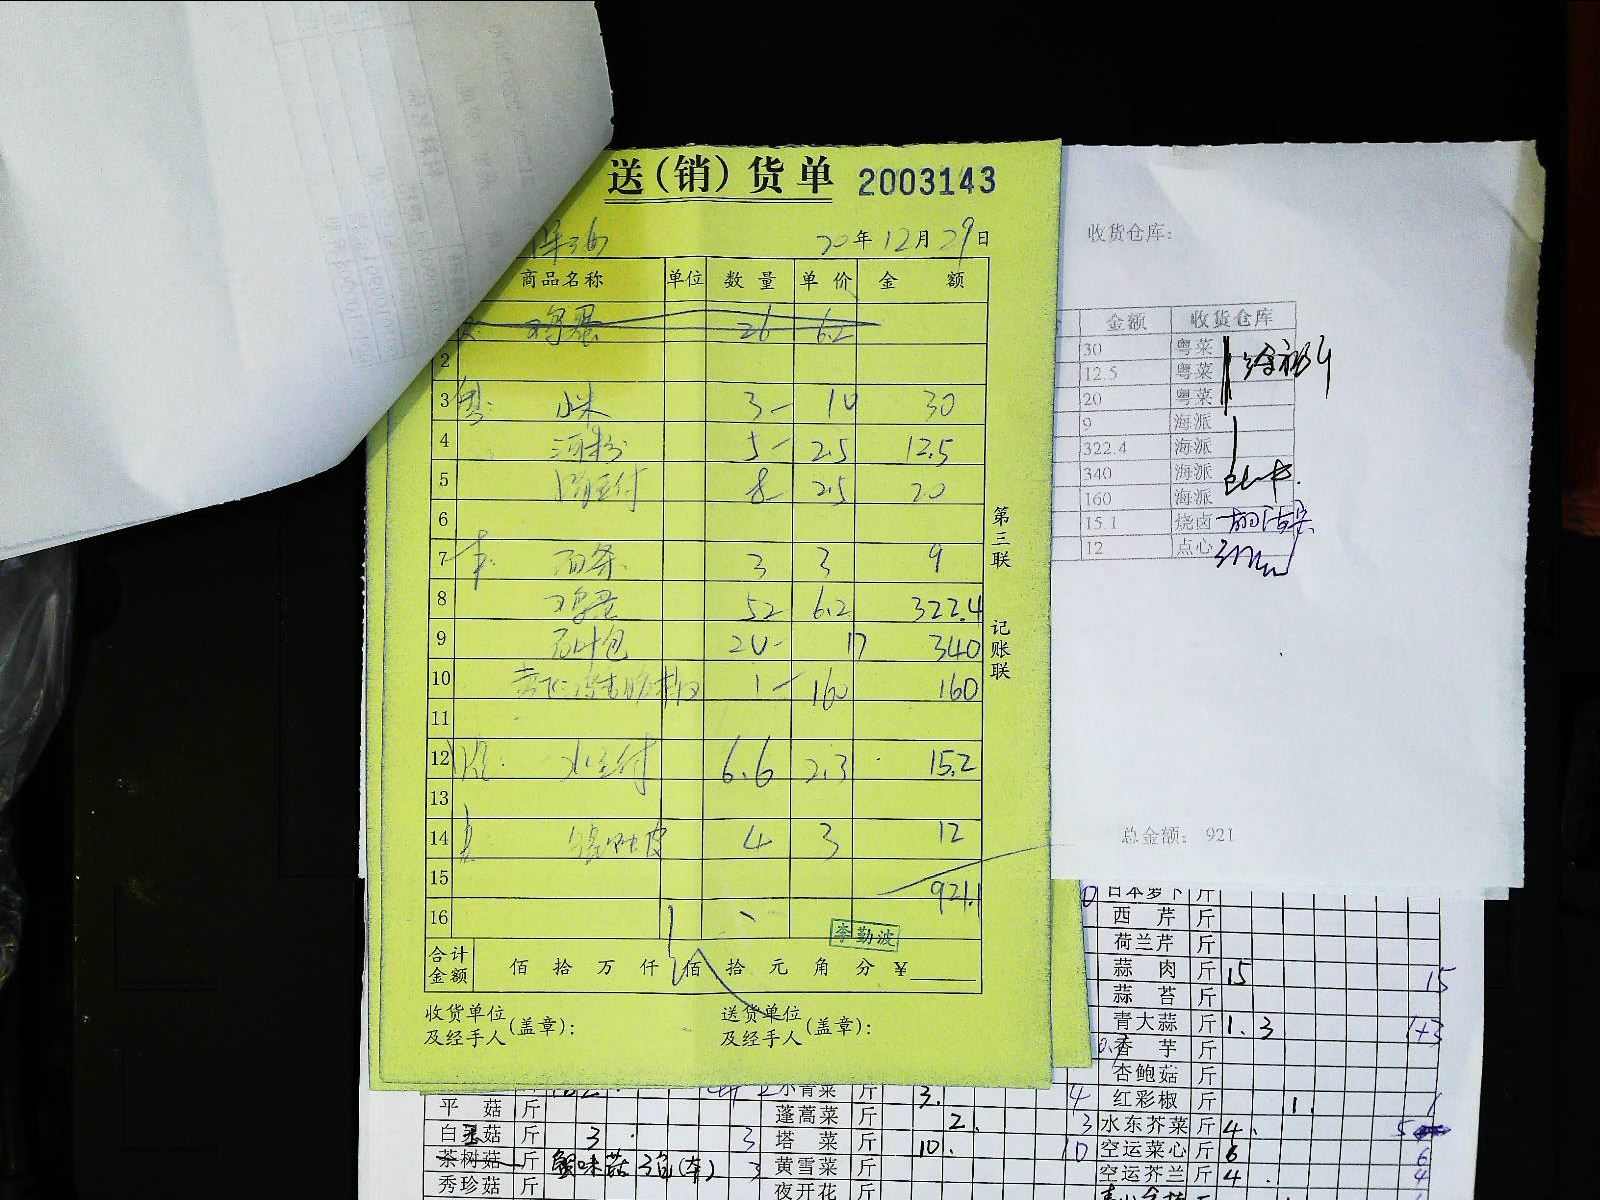 送(销)货单 2003143
20年12月29日
商品名称 单位 数量 单价 金额
鸡蛋 26 6.2
2
3 粤: 小米 3- 10 30
4 河粉 5- 2.5 12.5
5 8- 2.5 20
6
7 本: 面条 3 3 9
8 鸡蛋 52 6.2 322.4
9 包 20- 17 340
10 1- 160 160
11
12 水豆付 6.6 2.3 15.2
13
14 皮 4 3 12
15 921.1
16
李勤波
合计金额 佰拾万仟佰拾元角分¥
收货单位及经手人(盖章):
送货单位及经手人(盖章):
第三联 记账联
收货仓库:
金额 收货仓库
30 粤菜
12.5 粤菜
20 粤菜
9 海派
322.4 海派
340 海派
160 海派
15.1 烧卤
12 点心
总金额: 921
日本萝卜 斤
西芹 斤
荷兰芹 斤
蒜肉 斤 15 15
蒜苔 斤
青大蒜 斤 1.3 1+3
香芋 斤
杏鲍菇 斤
红彩椒 斤 1. 1
水东芥菜 斤 4. 5
空运菜心 斤 6 6
空运芥兰 斤 4. 4
小青菜 斤 3. 4
蓬蒿菜 斤 2. 3
塔菜 斤 10. 10
黄雪菜 斤
夜开花 斤
平菇 斤
白玉菇 斤 3. 3
茶树菇 斤 蟹味菇 3包(本) 3
秀珍菇 斤